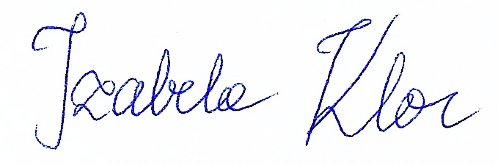 Izabela Kloc